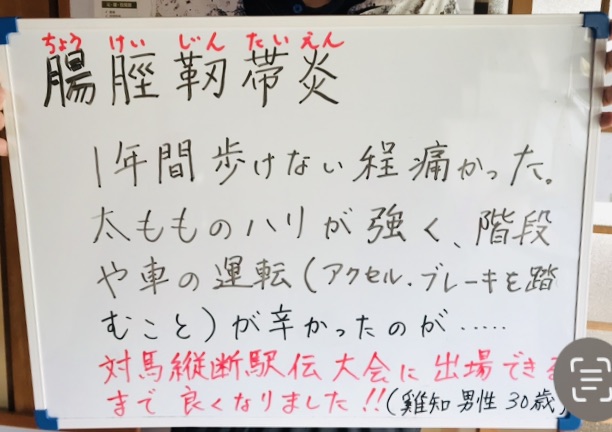 ちょう けい じん たい えん
腸脛靭帯炎
1年間歩けない程痛かった。
太もものハリが強く、階段
や車の運転(アクセル・ブレーキを踏
むこと)が辛かったのが……
対馬縦断駅伝大会に出場できる
まで良くなりました!!(雞知男性30歳)